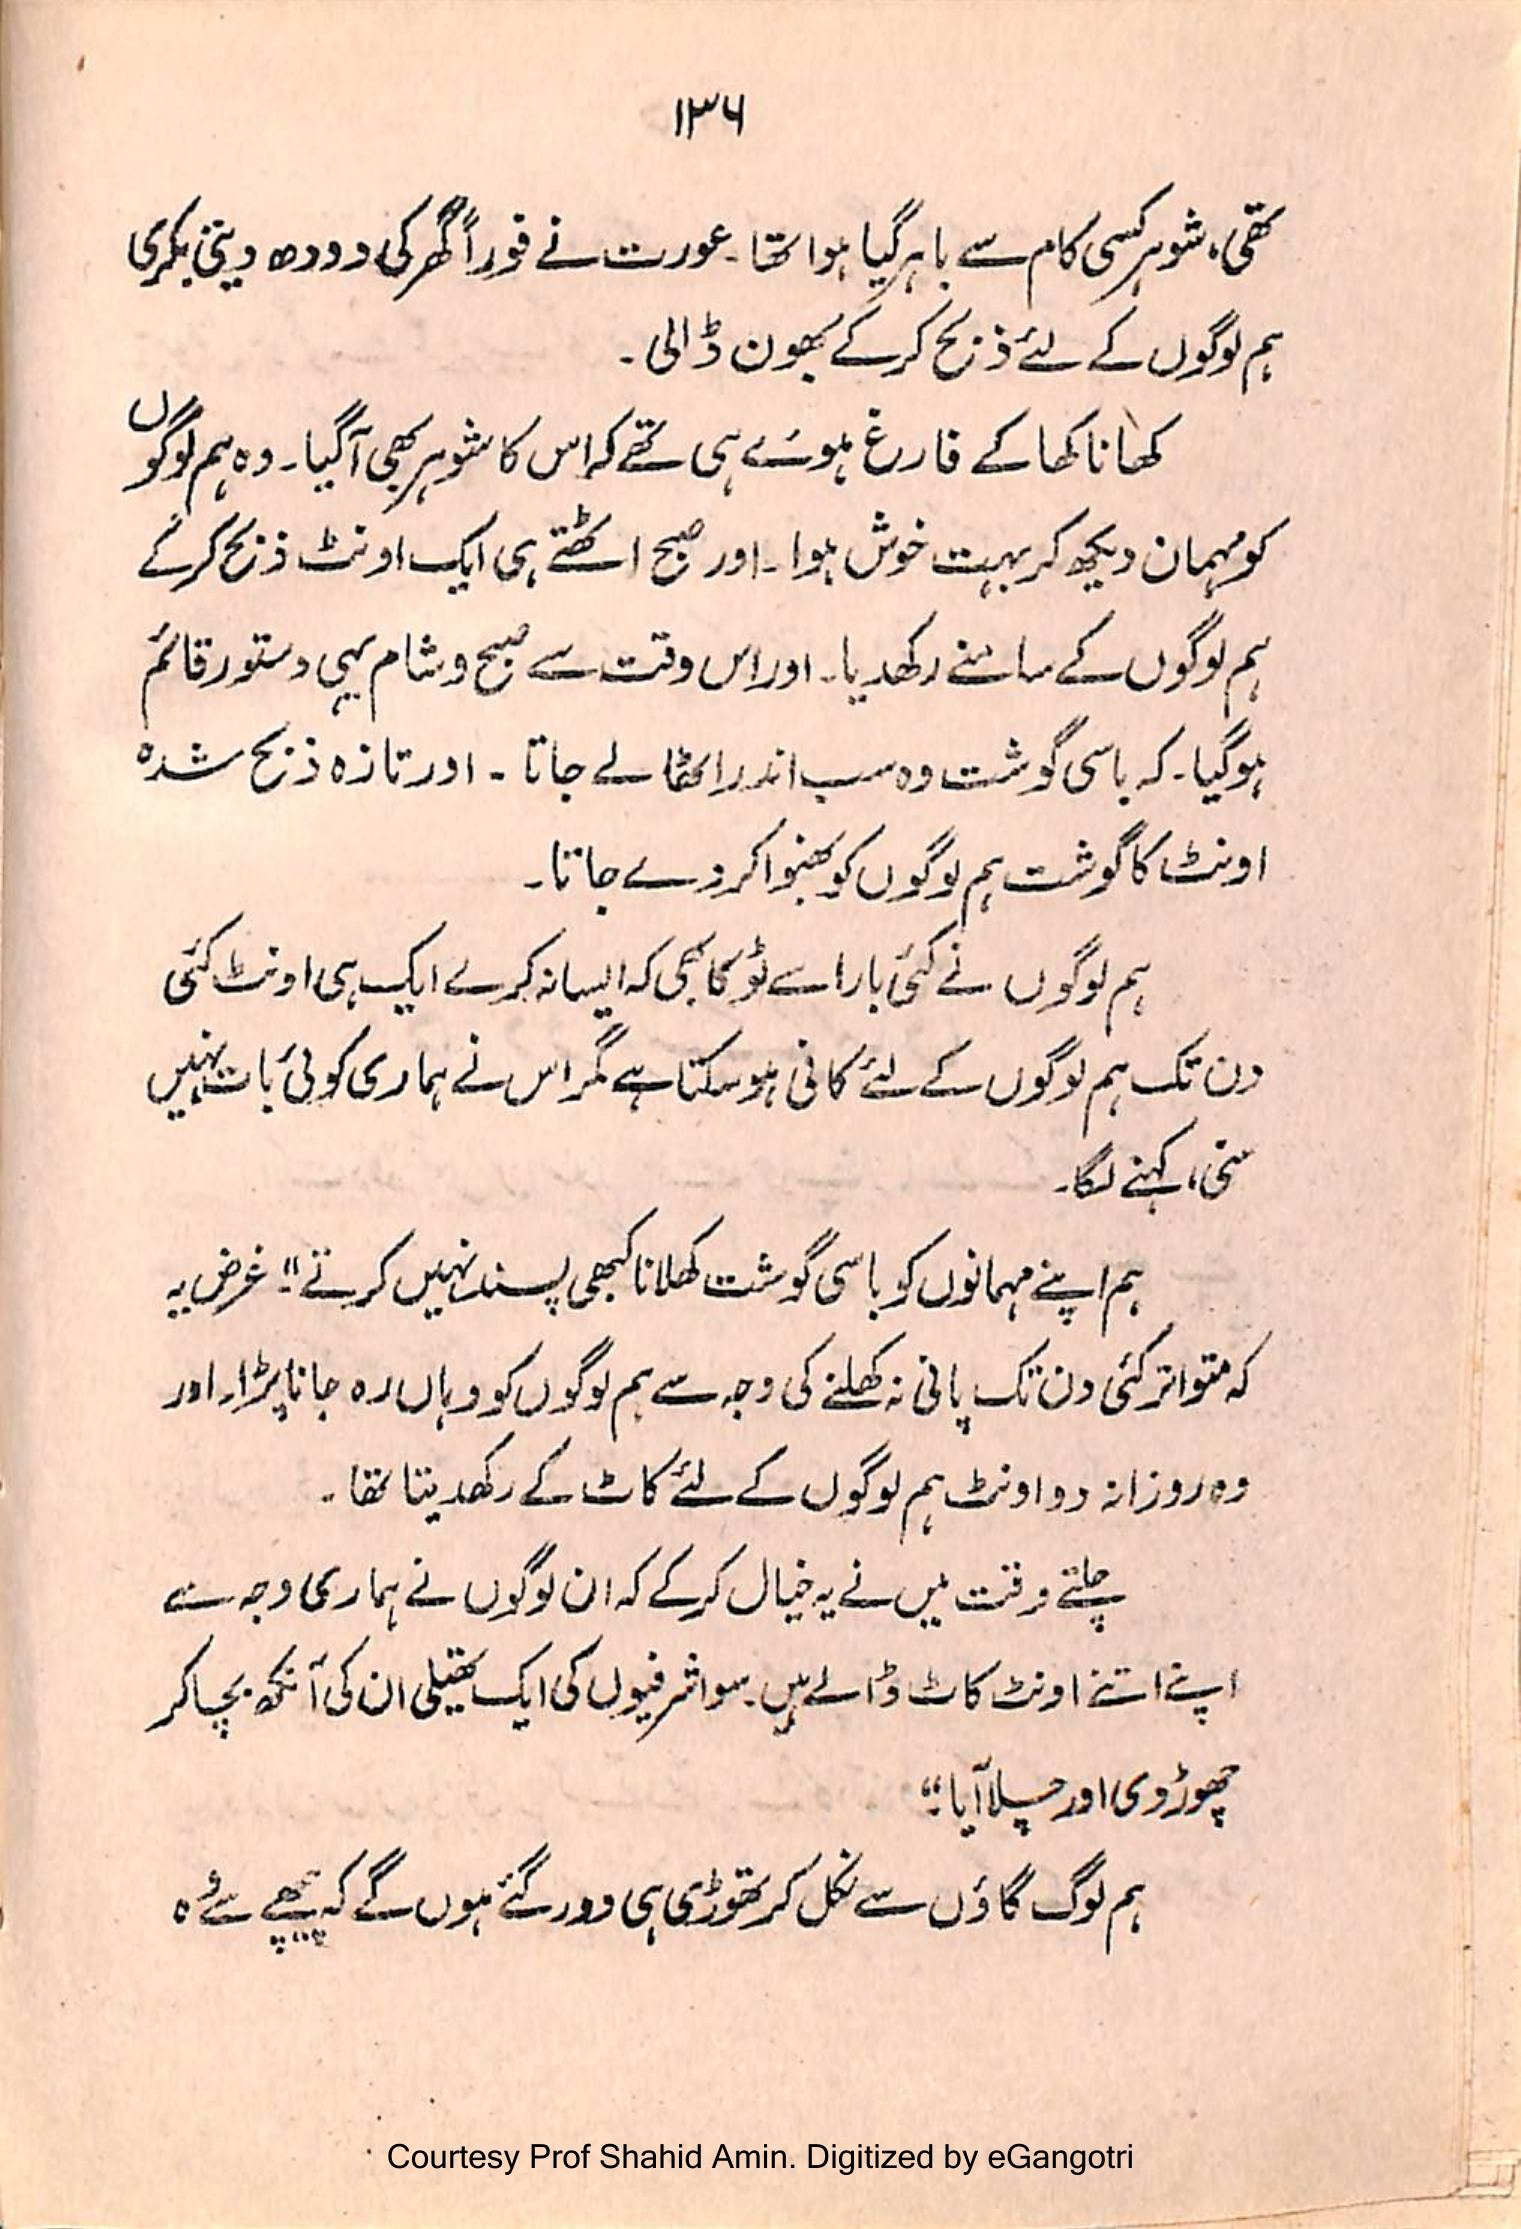 ۱۳۶
تھی، شوہر کسی کام سے باہر گیا ہوا تھا۔ عورت نے فوراً گھر کی دودھ دیتی بکری
ہم لوگوں کے لئے ذبح کر کے بھون ڈالی۔
کھانا کھا کے فارغ ہوئے ہی تھے کہ اس کا شوہر بھی آگیا۔ وہ ہم لوگوں
کو مہمان دیکھ کر بہت خوش ہوا۔ اور صبح اٹھتے ہی ایک اونٹ ذبح کر کے
ہم لوگوں کے سامنے رکھدیا۔ اور اس وقت سے صبح و شام یہی دستور قائم
ہو گیا۔ کہ باسی گوشت وہ سب اندر اٹھا لے جاتا۔ اور تازہ ذبح شدہ
اونٹ کا گوشت ہم لوگوں کو بھنوا کر دے جاتا۔
ہم لوگوں نے کئی بار اسے ٹوکا بھی کہ ایسا نہ کرے ایک ہی اونٹ کئی
دن تک ہم لوگوں کے لئے کافی ہو سکتا ہے مگر اس نے ہماری کوئی بات نہیں
سنی، کہنے لگا۔
ہم اپنے مہمانوں کو باسی گوشت کھلانا کبھی پسند نہیں کرتے"۔ غرض یہ
کہ متواتر کئی دن تک پانی نہ کھلنے کی وجہ سے ہم لوگوں کو وہاں رہ جانا پڑا۔ اور
وہ روزانہ دو اونٹ ہم لوگوں کے لئے کاٹ کے رکھدیتا تھا۔
چلتے وقت میں نے یہ خیال کر کے کہ ان لوگوں نے ہماری وجہ سے
اپنے اتنے اونٹ کاٹ ڈالے ہیں۔ سو اشرفیوں کی ایک تھیلی ان کی آنکھ بچا کر
چھوڑ دی اور چلا آیا"۔
ہم لوگ گاؤں سے نکل کر تھوڑی ہی دور گئے ہوں گے کہ پیچھے سے وہ
Courtesy Prof Shahid Amin. Digitized by eGangotri